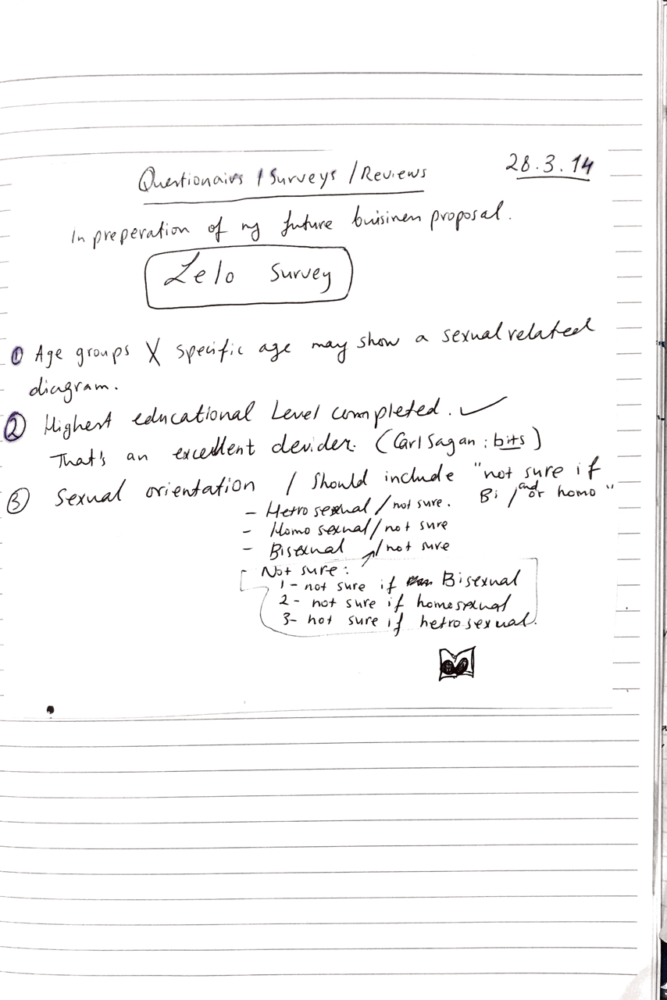 28.3.14
Questionairs / Surveys / Reviews
In preperation of my future buisiness proposal.
Lelo Survey
① Age groups X specific age may show a sexual related
diagram.
② Highest educational Level completed. ✓
That's an excellent devider. (Carl Sagan : bits)
③ Sexual orientation / Should include "not sure if
Bi / and or homo"
- Hetro sexual / not sure.
- Homo sexual / not sure
- Bisexual / not sure
Not sure :
1- not sure if Bisexual
2- not sure if homosexual
3- not sure if hetrosexual.